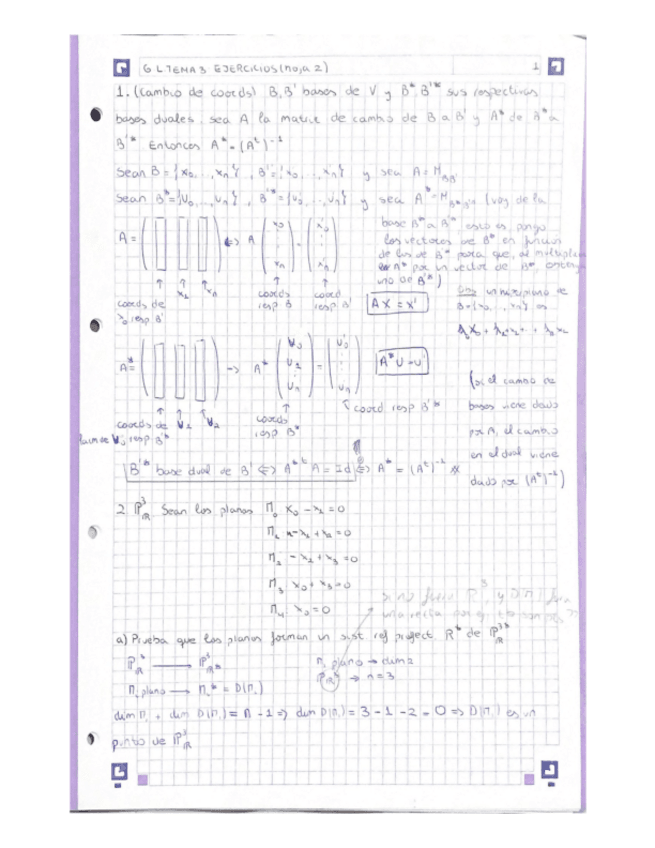 GL TEMA 3 EJERCICIOS (hoja 2) 1
1. (Cambio de coords) B, B' bases de V y B*, B'* sus respectivas
bases duales. sea A la matriz de cambio de B a B' y A* de B* a
B'*. Entonces A* = (Aᵗ)⁻¹
Sean B = {x₀, ..., xₙ}, B' = {x₀', ..., xₙ'} y sea A = M_BB'
Sean B* = {U₀, ..., Uₙ}, B'* = {U₀', ..., Uₙ'} y sea A* = M_B*B'* (voy de la
base B* a B'*, esto es, pongo
los vectores de B* en función
de los de B'* para que, al multiplicar
A* por un vector de B*, obtenga
uno de B'*)
A = ( ) <=> A ( x₀ ... xₙ ) = ( x₀' ... xₙ' )
coords de x₀ resp B' x₁ xₙ
coords resp B
coord resp B'
AX = X'
un hiperplano de
B = {x₀, ..., xₙ} es
A* = ( ) -> A* ( U₀ U₁ ... Uₙ ) = ( U₀' U₁' ... Uₙ' )
A*U = U'
coords de U₁ U₂
U₀ resp B'*
coords resp B*
coord resp B'*
(si el cambio de
bases viene dado
por A, el cambio
en el dual viene
dado por (Aᵗ)⁻¹)
B'* base dual de B' <=> A*ᵗ A = Id <=> A* = (Aᵗ)⁻¹
2. P³_R Sean los planos Π₀ x₀ - x₁ = 0
Π₂ - x₂ + x₃ = 0
Π₃ x₀ + x₃ = 0
Π₄ x₀ = 0
a) Prueba que los planos forman un sist ref project. R* de P³*_R
P³_R -> P³*_R Πᵢ plano -> dim 2
P³_R -> n = 3
Πᵢ plano -> Πᵢ* = D(Πᵢ)
dim Πᵢ + dim D(Πᵢ) = n - 1 => dim D(Πᵢ) = 3 - 1 - 2 = 0 => D(Πᵢ) es un
punto de P³_R